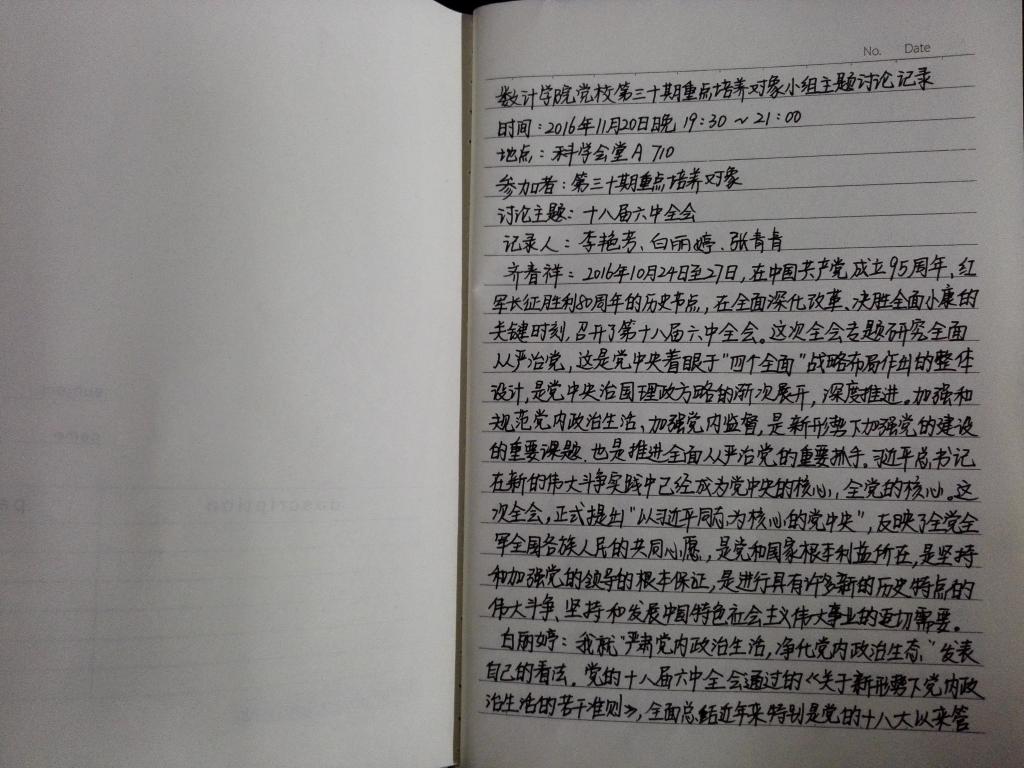 No. Date
数计学院党校第三十期重点培养对象小组主题讨论记录
时间：2016年11月20日晚 19:30 ~ 21:00
地点：科学会堂A 710
参加者：第三十期重点培养对象
讨论主题：十八届六中全会
记录人：李艳芳、白丽婷、张青青
齐春祥：2016年10月24日至27日，在中国共产党成立95周年，红
军长征胜利80周年的历史节点，在全面深化改革、决胜全面小康的
关键时刻，召开了第十八届六中全会。这次全会专题研究全面
从严治党，这是党中央着眼于"四个全面"战略布局作出的整体
设计，是党中央治国理政方略的渐次展开，深度推进。加强和
规范党内政治生活、加强党内监督，是新形势下加强党的建设
的重要课题，也是推进全面从严治党的重要抓手。习近平总书记
在新的伟大斗争实践中已经成为党中央的核心，全党的核心。这
次全会，正式提出"以习近平同志为核心的党中央"，反映了全党全
军全国各族人民的共同心愿，是党和国家根本利益所在，是坚持
和加强党的领导的根本保证，是进行具有许多新的历史特点的
伟大斗争、坚持和发展中国特色社会主义伟大事业的迫切需要。
白丽婷：我就"严肃党内政治生活，净化党内政治生态"发表
自己的看法。党的十八届六中全会通过的《关于新形势下党内政
治生活的若干准则》，全面总结近年来特别是党的十八大以来管